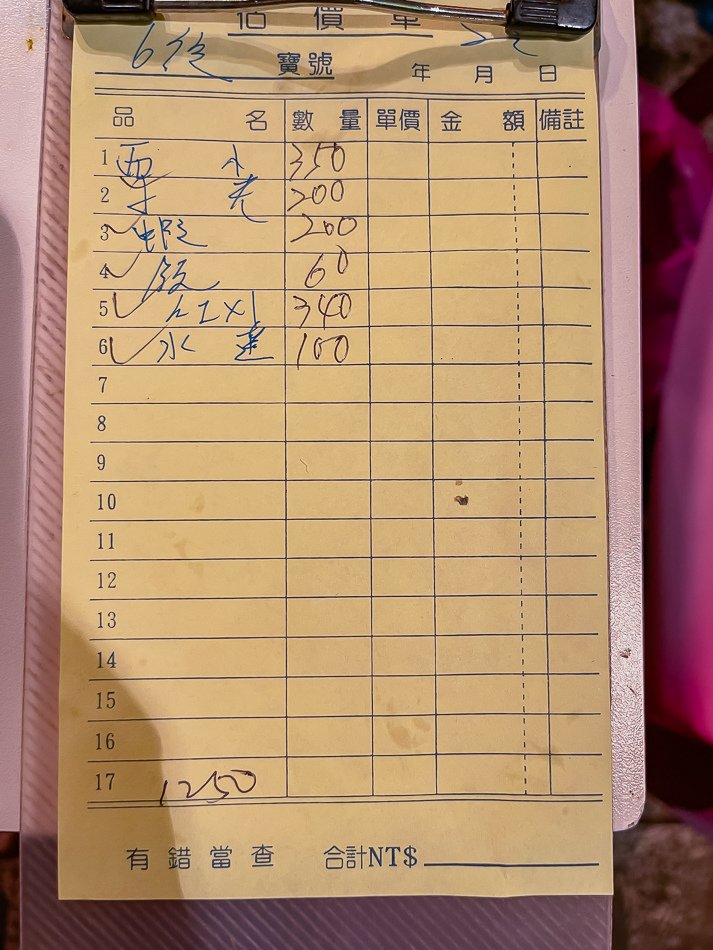 估價單
6後
寶號 年 月 日
品名 數量 單價 金額 備註
1 350
2 200
3 蝦 200
4 飯 60
5 340
6 水蓮 100
7
8
9
10
11
12
13
14
15
16
17 1250
有錯當查 合計NT$